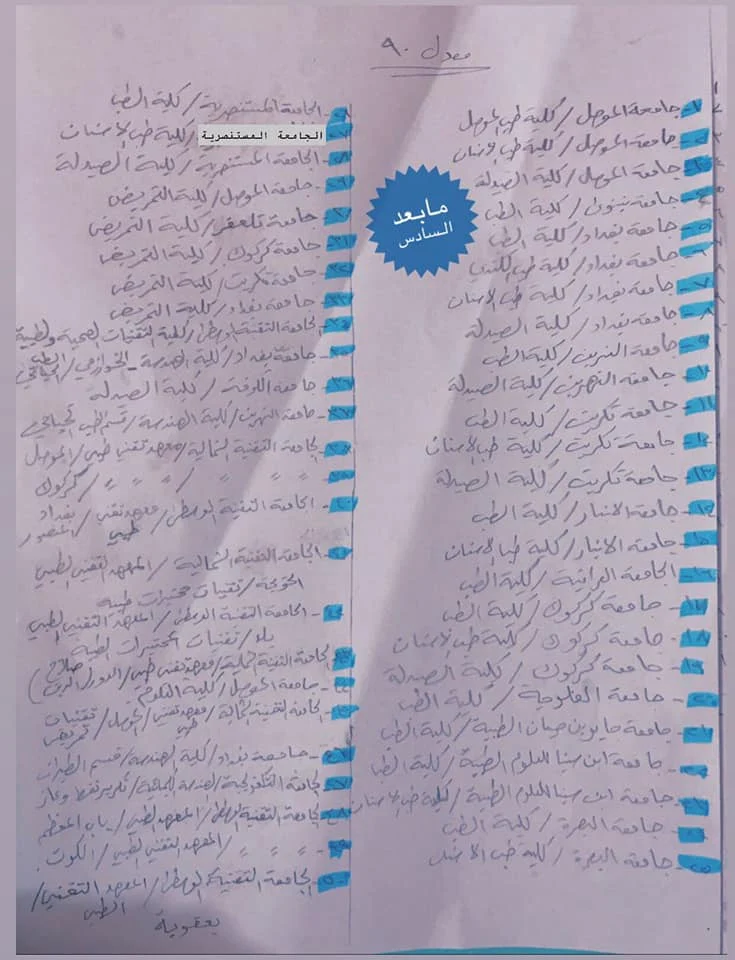 معدل ٩٠
١- جامعة الموصل / كلية طب الموصل
٢- جامعة الموصل / كلية طب الاسنان
٣- جامعة الموصل / كلية الصيدلة
٤- جامعة نينوى / كلية الطب
٥- جامعة بغداد / كلية الطب
٦- جامعة بغداد / كلية طب الكندي
٧- جامعة بغداد / كلية طب الاسنان
٨- جامعة بغداد / كلية الصيدلة
٩- جامعة النهرين / كلية الطب
١٠- جامعة النهرين / كلية الصيدلة
١١- جامعة تكريت / كلية الطب
١٢- جامعة تكريت / كلية طب الاسنان
١٣- جامعة تكريت / كلية الصيدلة
١٤- جامعة الانبار / كلية الطب
١٥- جامعة الانبار / كلية طب الاسنان
١٦- الجامعة العراقية / كلية الطب
١٧- جامعة كركوك / كلية الطب
١٨- جامعة كركوك / كلية طب الاسنان
١٩- جامعة كركوك / كلية الصيدلة
٢٠- جامعة الفلوجة / كلية الطب
٢١- جامعة جابر بن حيان الطبية / كلية الطب
٢٢- جامعة ابن سينا للعلوم الطبية / كلية الطب
٢٣- جامعة ابن سينا للعلوم الطبية / كلية طب الاسنان
٢٤- جامعة البصرة / كلية الطب
٢٥- جامعة البصرة / كلية طب الاسنان
مابعد
السادس
٢٦- الجامعة المستنصرية / كلية الطب
٢٧- الجامعة المستنصرية / كلية طب الاسنان
٢٨- الجامعة المستنصرية / كلية الصيدلة
٢٩- جامعة الموصل / كلية التمريض
٣٠- جامعة تلعفر / كلية التمريض
٣١- جامعة كركوك / كلية التمريض
٣٢- جامعة تكريت / كلية التمريض
٣٣- جامعة بغداد / كلية التمريض
٣٤- الجامعة التقنية الوسطى / كلية التقنيات الصحية والطبية
٣٥- جامعة بغداد / كلية الهندسة - الخوارزمي / الطب الحياتي
٣٦- جامعة الكوفة / كلية الصيدلة
٣٧- جامعة النهرين / كلية الهندسة / قسم الطب الحياتي
٣٨- الجامعة التقنية الشمالية / معهد تقني طبي / الموصل
٣٩- 〃 〃 / 〃 〃 / كركوك
٤٠- الجامعة التقنية الوسطى / معهد تقني طبي / بغداد المنصور
٤١- الجامعة التقنية الشمالية / المعهد التقني الطبي
الحويجة / تقنيات مختبرات طبية
٤٢- الجامعة التقنية الوسطى / المعهد التقني الطبي
/ تقنيات المختبرات الطبية
٤٣- الجامعة التقنية الشمالية / معهد تقني طبي / الدور صلاح الدين
٤٤- جامعة الموصل / كلية العلوم
٤٥- الجامعة التقنية الشمالية / معهد تقني طبي / الموصل / تقنيات تمريض
٤٦- جامعة بغداد / كلية الهندسة / قسم الطيران
٤٧- الجامعة التكنولوجية / هندسة / تكرير نفط وغاز
٤٨- الجامعة التقنية الوسطى / المعهد الطبي / باب المعظم
٤٩- 〃 〃 〃 / المعهد التقني الطبي / الكوت
٥٠- الجامعة التقنية الوسطى / المعهد التقني الطبي /
بعقوبة